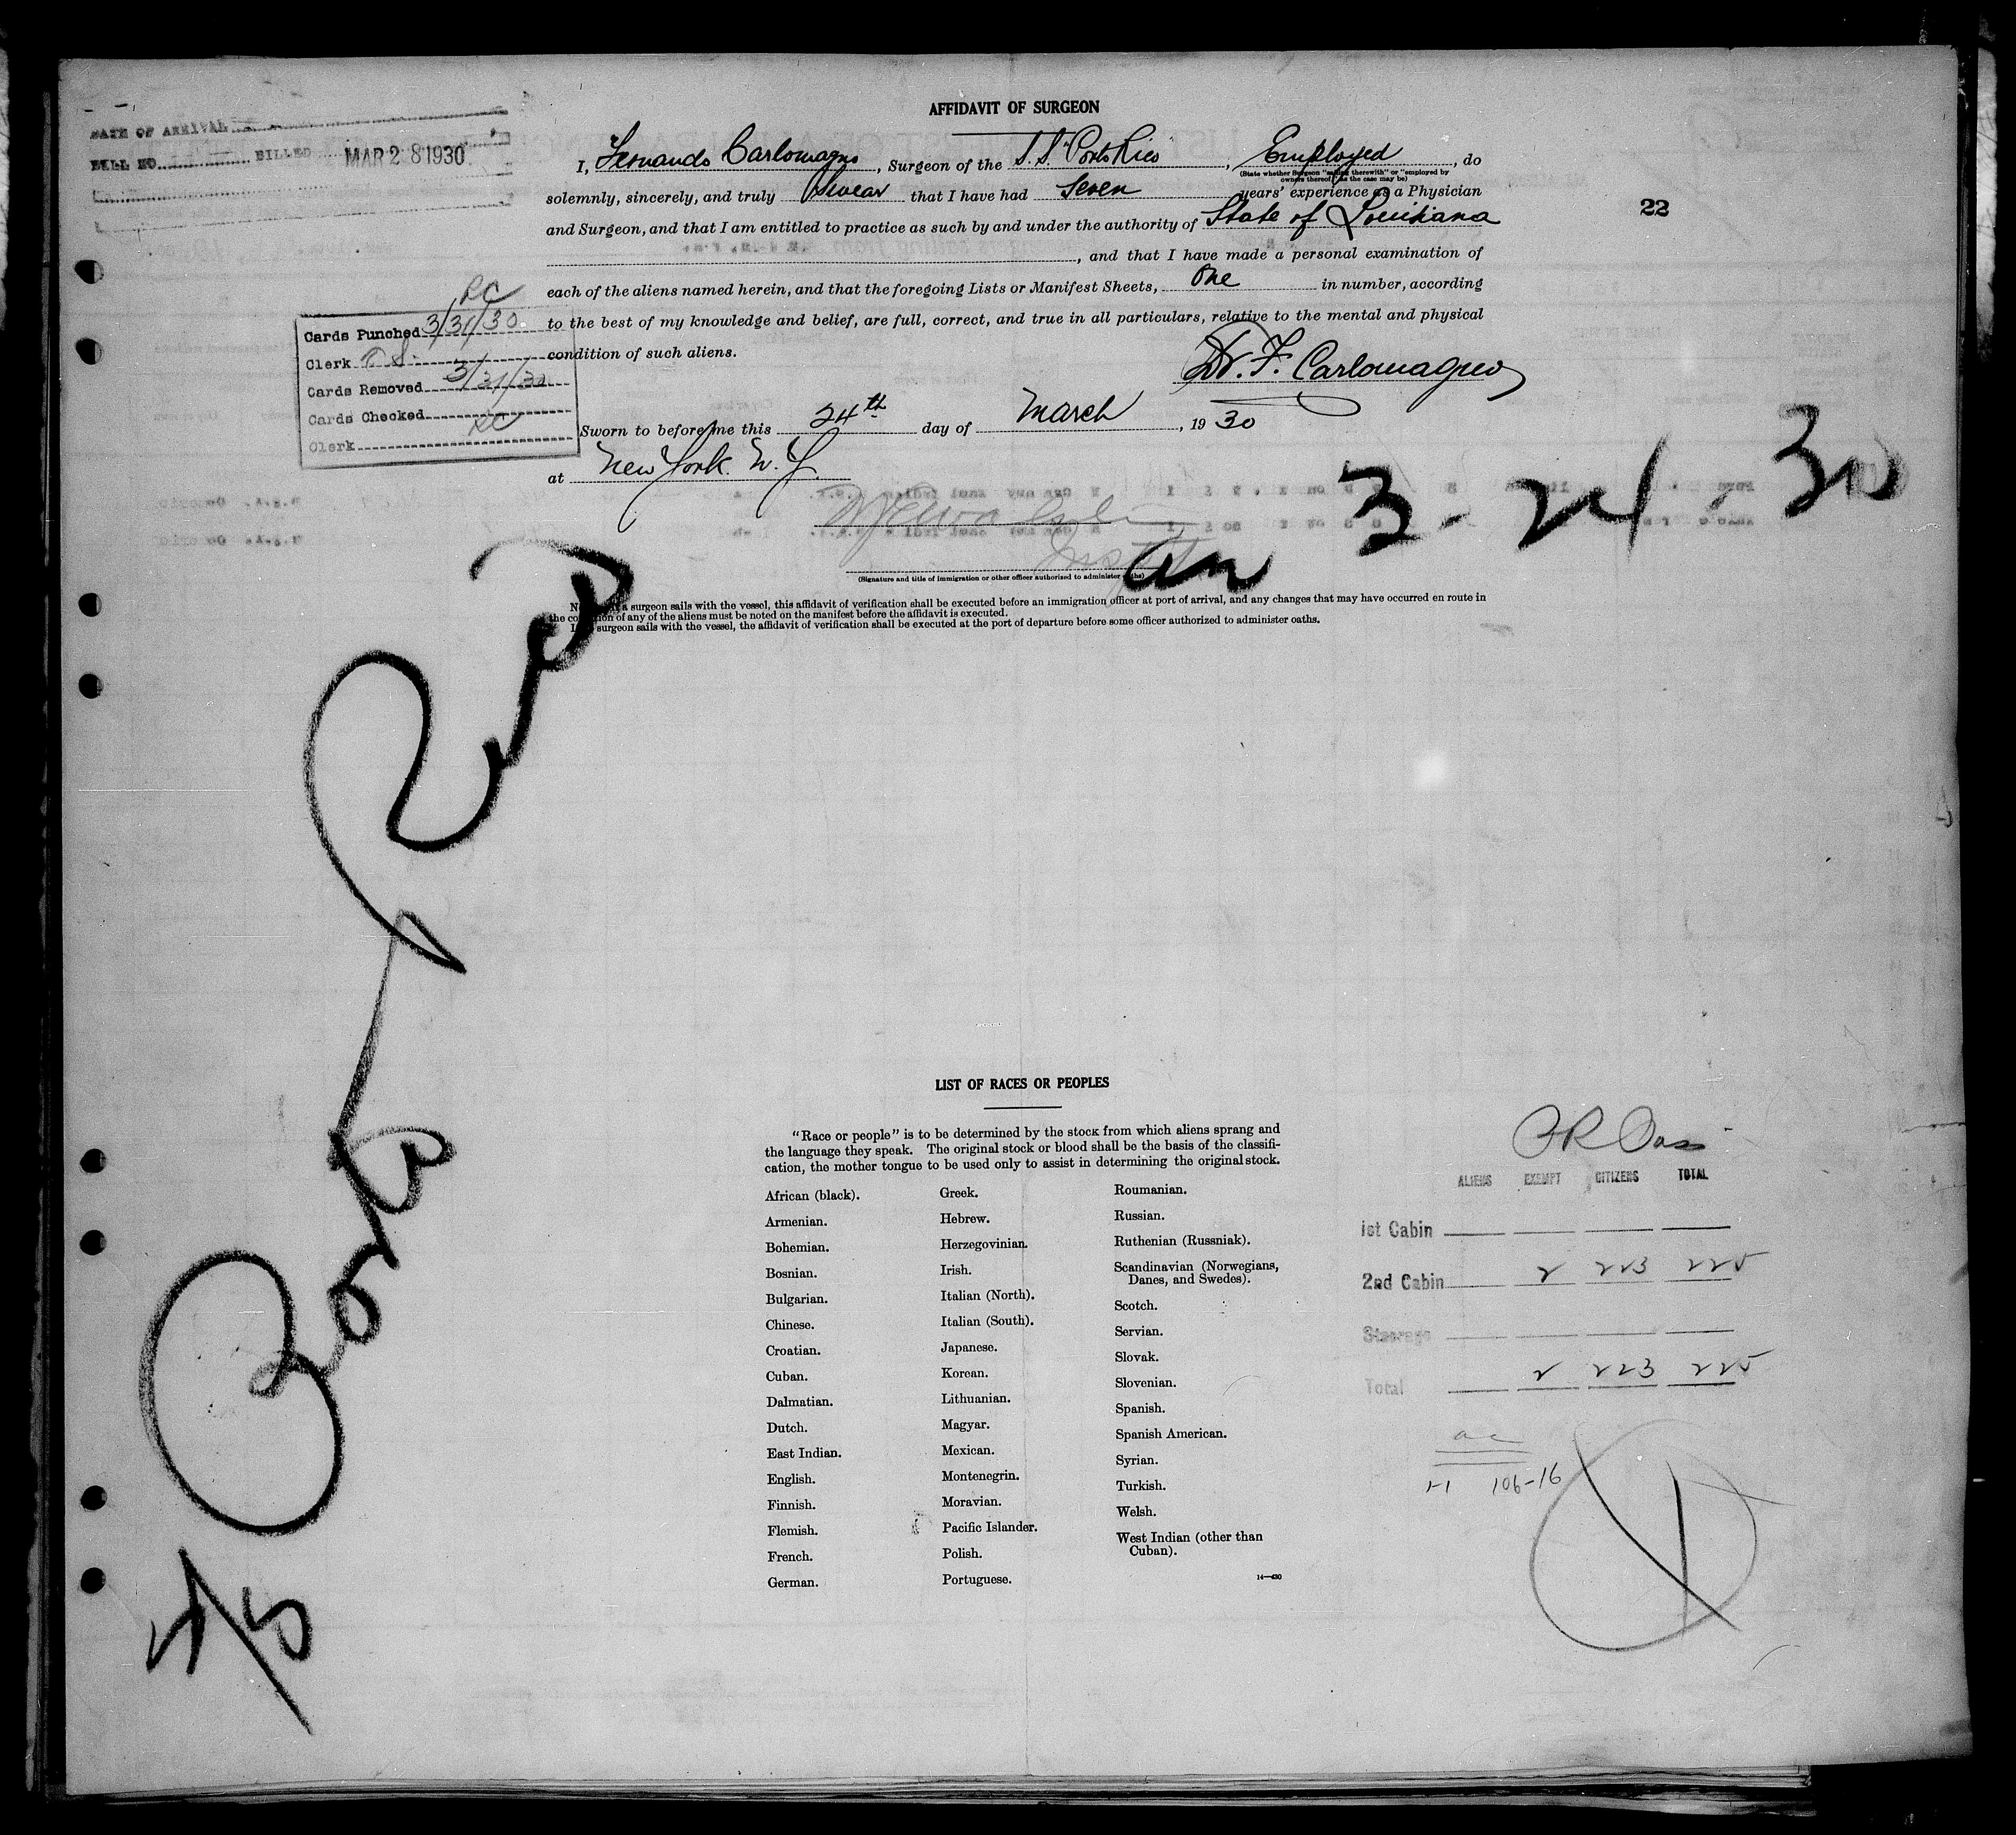 AFFIDAVIT OF SURGEON
DATE OF ARRIVAL
BILL NO. BILLED MAR 28 1930
I, Fernando Carlomagno, Surgeon of the S.S. "Porto Rico, Employed, do
(State whether Surgeon "sailing therewith" or "employed by
owners thereof," as the case may be)
solemnly, sincerely, and truly Swear that I have had Seven years' experience as a Physician
and Surgeon, and that I am entitled to practice as such by and under the authority of State of Louisiana
, and that I have made a personal examination of
each of the aliens named herein, and that the foregoing Lists or Manifest Sheets, One in number, according
to the best of my knowledge and belief, are full, correct, and true in all particulars, relative to the mental and physical
condition of such aliens.
22
RC
Cards Punched 3/31/30
Clerk
Cards Removed 3/31/30
Cards Checked
Clerk RC
Dr. F. Carlomagno
Sworn to before me this 24th day of March, 1930
at New York. N.Y.
am 3-24-30
(Signature and title of immigration or other officer authorized to administer oaths)
a surgeon sails with the vessel, this affidavit of verification shall be executed before an immigration officer at port of arrival, and any changes that may have occurred en route in
the condition of any of the aliens must be noted on the manifest before the affidavit is executed.
surgeon sails with the vessel, the affidavit of verification shall be executed at the port of departure before some officer authorized to administer oaths.
S/S Porto Rico
LIST OF RACES OR PEOPLES
"Race or people" is to be determined by the stock from which aliens sprang and
the language they speak. The original stock or blood shall be the basis of the classifi-
cation, the mother tongue to be used only to assist in determining the original stock.
African (black).
Armenian.
Bohemian.
Bosnian.
Bulgarian.
Chinese.
Croatian.
Cuban.
Dalmatian.
Dutch.
East Indian.
English.
Finnish.
Flemish.
French.
German.
Greek.
Hebrew.
Herzegovinian.
Irish.
Italian (North).
Italian (South).
Japanese.
Korean.
Lithuanian.
Magyar.
Mexican.
Montenegrin.
Moravian.
Pacific Islander.
Polish.
Portuguese.
Roumanian.
Russian.
Ruthenian (Russniak).
Scandinavian (Norwegians,
Danes, and Swedes).
Scotch.
Servian.
Slovak.
Slovenian.
Spanish.
Spanish American.
Syrian.
Turkish.
Welsh.
West Indian (other than
Cuban).
14—430
PR
ALIENS EXEMPT CITIZENS TOTAL
1st Cabin
2nd Cabin 2 223 225
Steerage
Total 2 223 225
1-1 106-16